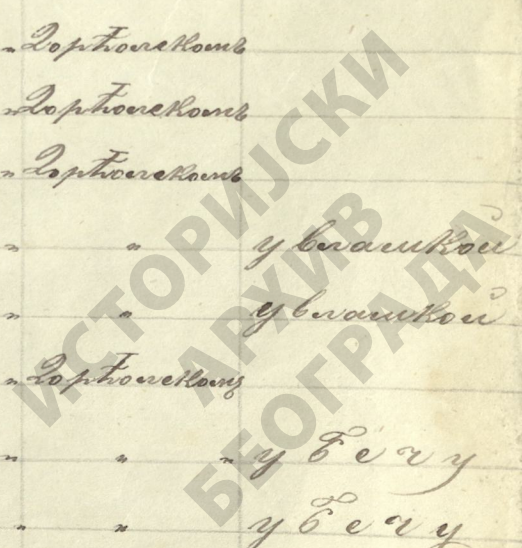 „ Дорћолскомъ
„ Дорћолскомъ
„ Дорћолскомъ
„ „ у влашкой
„ „ у влашкой
„ Дорћолскомъ
„ „ „ у Бечу
„ „ у Бечу
ИСТОРИЈСКИ
АРХИВ
БЕОГРАДА